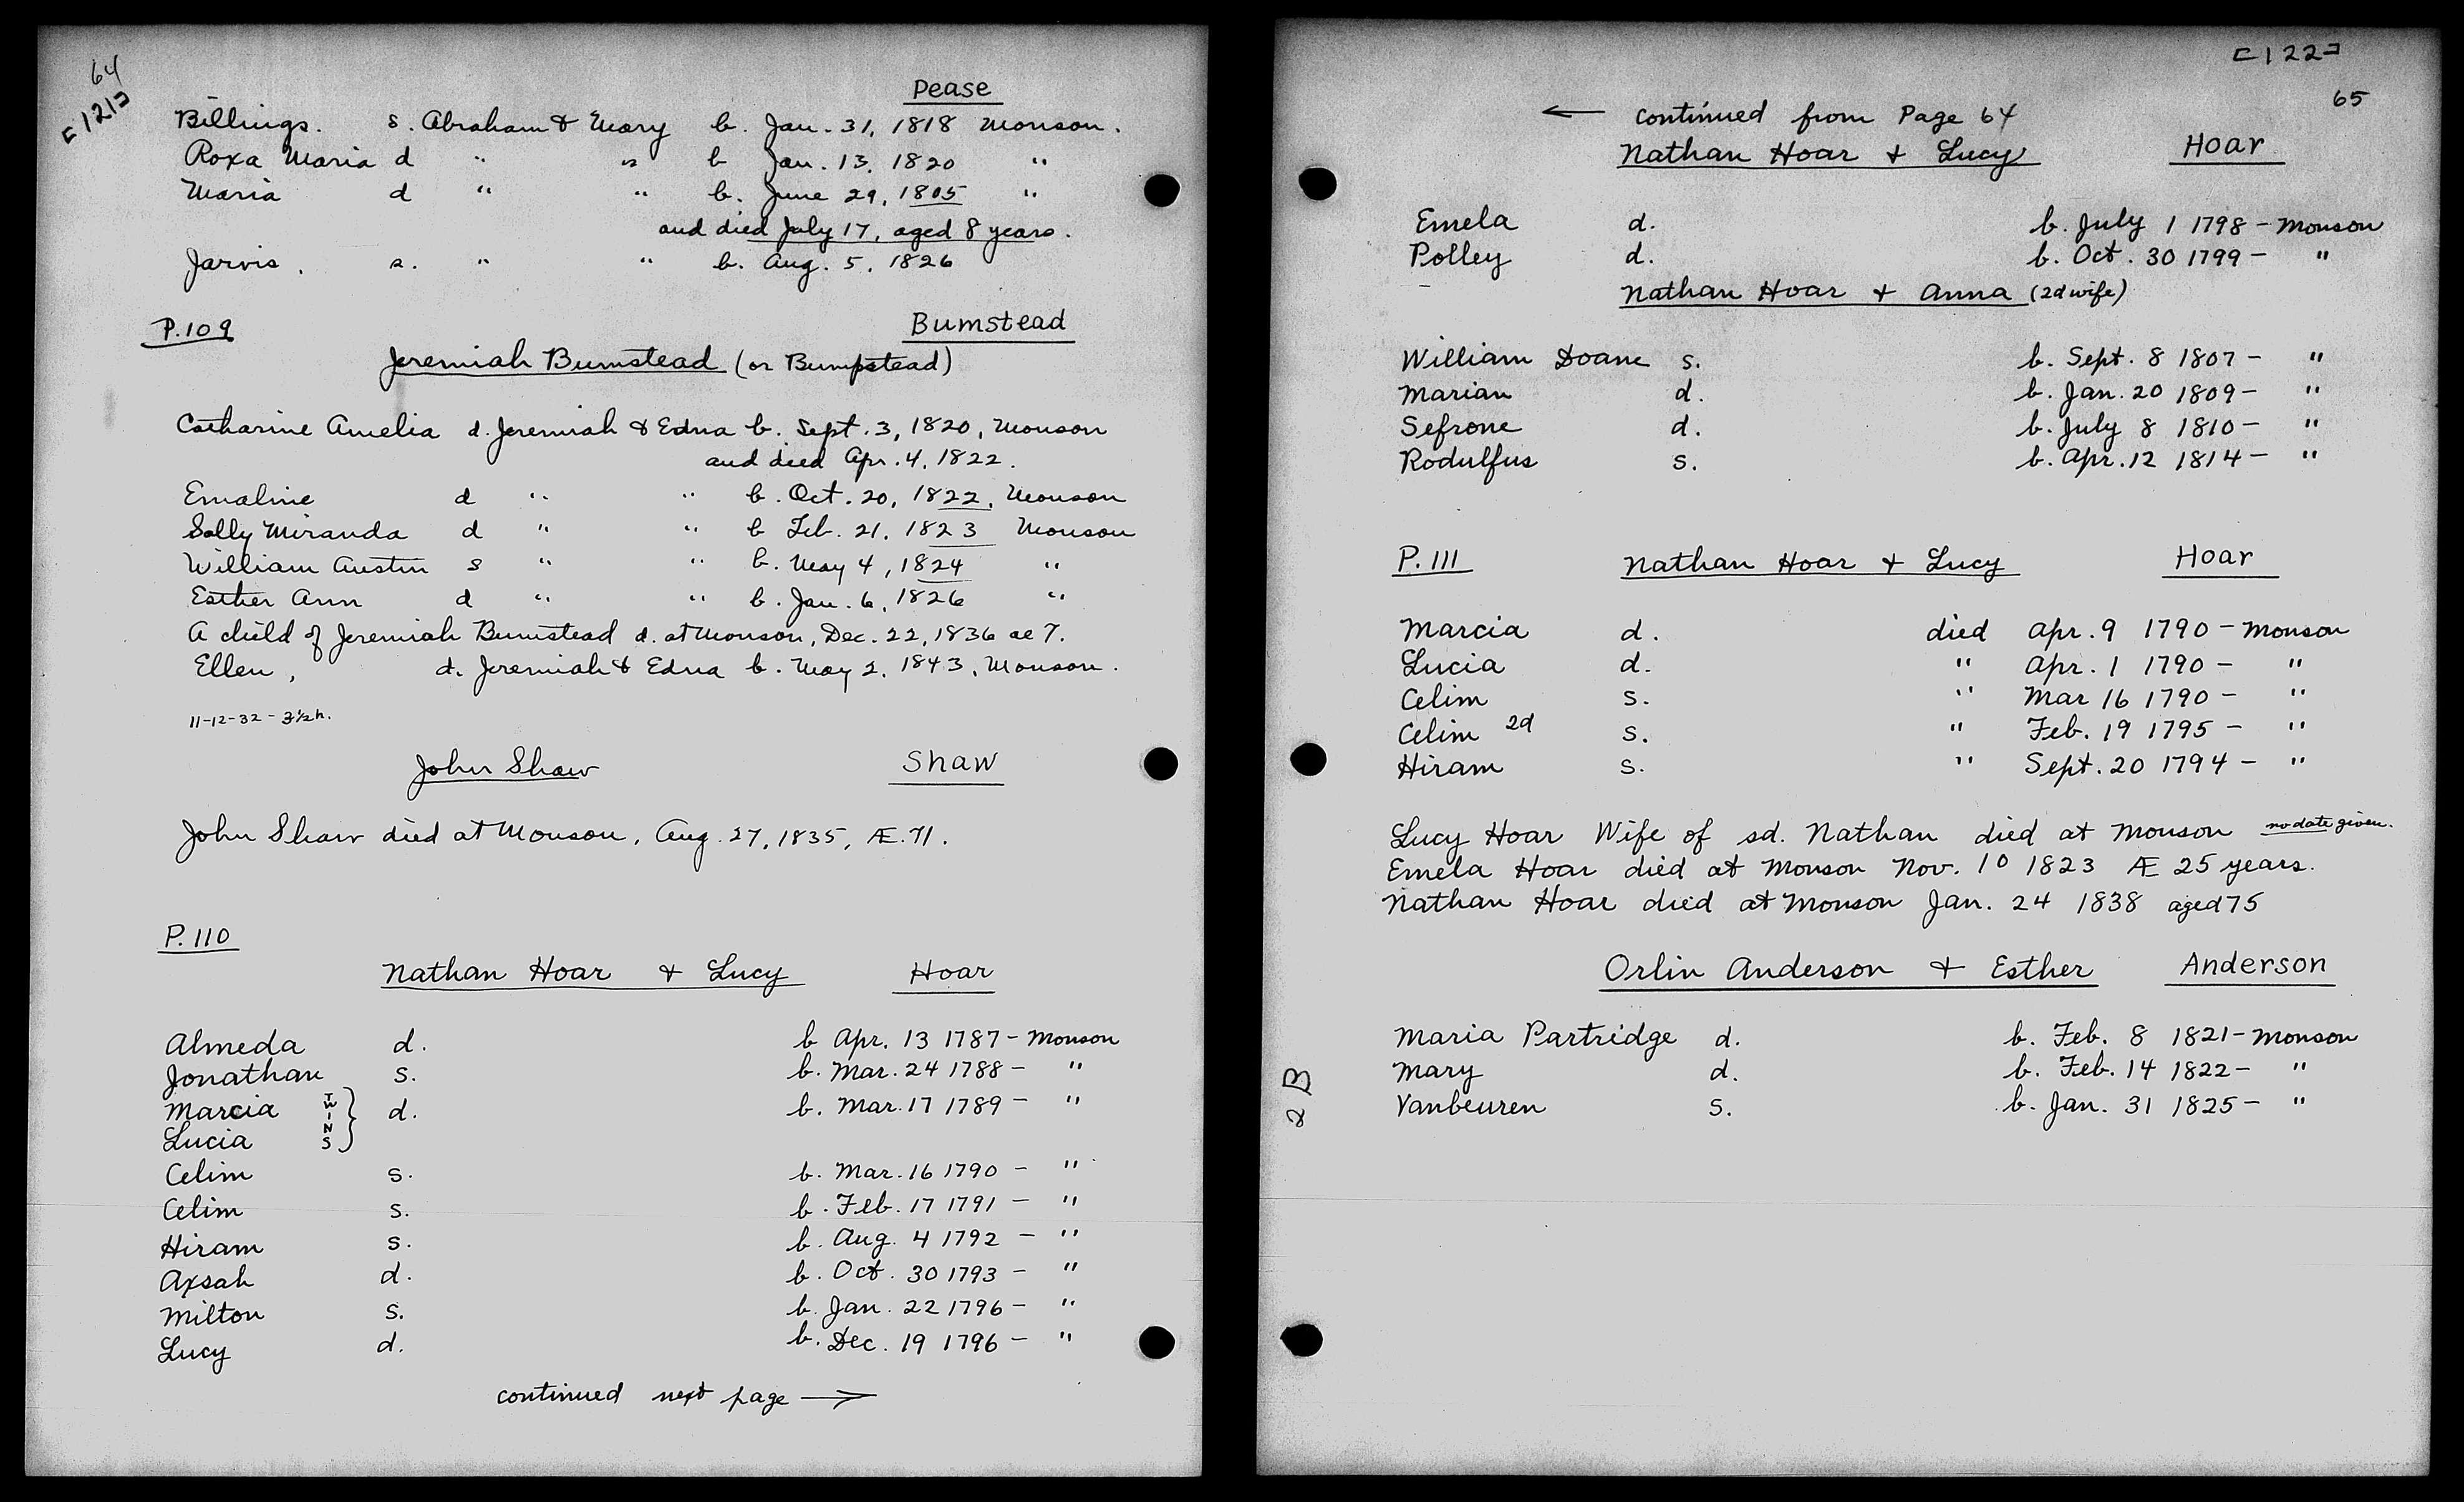 64
[121]
Pease
Billings. s. Abraham & Mary b. Jan. 31, 1818 Monson.
Roxa Maria d " " b Jan. 13. 1820 "
Maria d " " b. June 29, 1805 "
and died July 17, aged 8 years.
Jarvis, s. " " b. Aug. 5, 1826
P. 109 Bumstead
Jeremiah Bumstead (or Bumpstead)
Catharine Amelia d. Jeremiah & Edna b. Sept. 3, 1820, Monson
and died Apr. 4, 1822.
Emaline d " " b. Oct. 20, 1822, Monson
Sally Miranda d " " b Feb. 21, 1823 Monson
William Austin s " " b. May 4, 1824 "
Esther Ann d " " b. Jan. 6, 1826 "
A child of Jeremiah Bumstead d. at Monson, Dec. 22, 1836 ae 7.
Ellen, d. Jeremiah & Edna b. May 2, 1843, Monson.
11-12-32 - 3½ h.
John Shaw Shaw
John Shaw died at Monson, Aug. 27, 1835, Æ. 71.
P. 110
Nathan Hoar & Lucy Hoar
Almeda d. b Apr. 13 1787 - Monson
Jonathan s. b. Mar. 24 1788 - "
Marcia TWINS } d. b. Mar. 17 1789 - "
Lucia
Celim s. b. Mar. 16 1790 - "
Celim s. b. Feb. 17 1791 - "
Hiram s. b. Aug. 4 1792 - "
Axsah d. b. Oct. 30 1793 - "
Milton s. b. Jan. 22 1796 - "
Lucy d. b. Dec. 19 1796 - "
continued next page →
[122]
65
← continued from Page 64
Nathan Hoar & Lucy Hoar
Emela d. b. July 1 1798 - Monson
Polley d. b. Oct. 30 1799 - "
Nathan Hoar & Anna (2d wife)
William Doane s. b. Sept. 8 1807 - "
Marian d. b. Jan. 20 1809 - "
Sefrone d. b. July 8 1810 - "
Rodulfus s. b. Apr. 12 1814 - "
P. 111 Nathan Hoar & Lucy Hoar
Marcia d. died Apr. 9 1790 - Monson
Lucia d. " Apr. 1 1790 - "
Celim s. " Mar 16 1790 - "
Celim 2d s. " Feb. 19 1795 - "
Hiram s. " Sept. 20 1794 - "
Lucy Hoar Wife of sd. Nathan died at Monson no date given.
Emela Hoar died at Monson Nov. 10 1823 Æ 25 years.
Nathan Hoar died at Monson Jan. 24 1838 aged 75
Orlin Anderson & Esther Anderson
Maria Partridge d. b. Feb. 8 1821 - Monson
Mary d. b. Feb. 14 1822 - "
Vanbeuren s. b. Jan. 31 1825 - "
2B